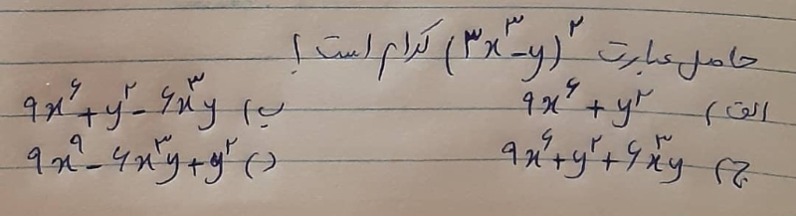 حاصل عبارت (۳x^۳-y)^۲ کدام است؟
الف) ۹x^۶ + y^۲ ب) ۹x^۶ + y^۲ - ۶x^۳y
ج) ۹x^۶ + y^۲ + ۶x^۳y د) ۹x^۹ - ۶x^۳y + y^۲